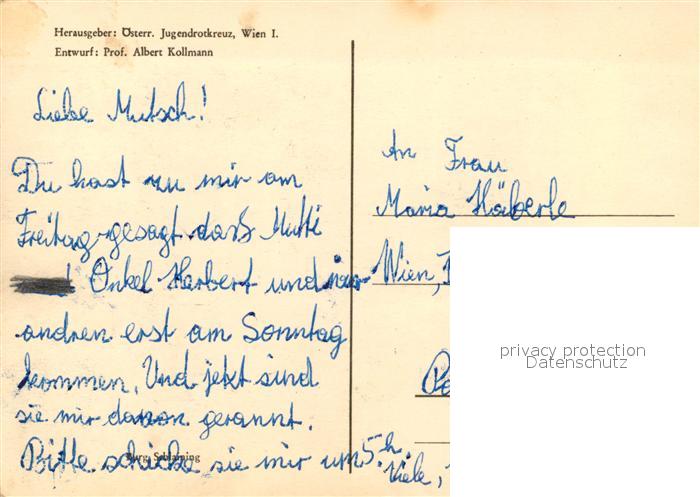 Herausgeber: Österr. Jugendrotkreuz, Wien I.
Entwurf: Prof. Albert Kollmann
Liebe Mutsch!
Du hast zu mir am
Freitag gesagt daß Mutti
Onkel Herbert und
andren erst am Sonntag
kommen. Und jetzt sind
sie mir davon gerannt.
Bitte schicke sie mir um 5 h.
Viele,
Burg Schlaining
An Frau
Maria Häberle
Wien,
privacy protection
Datenschutz